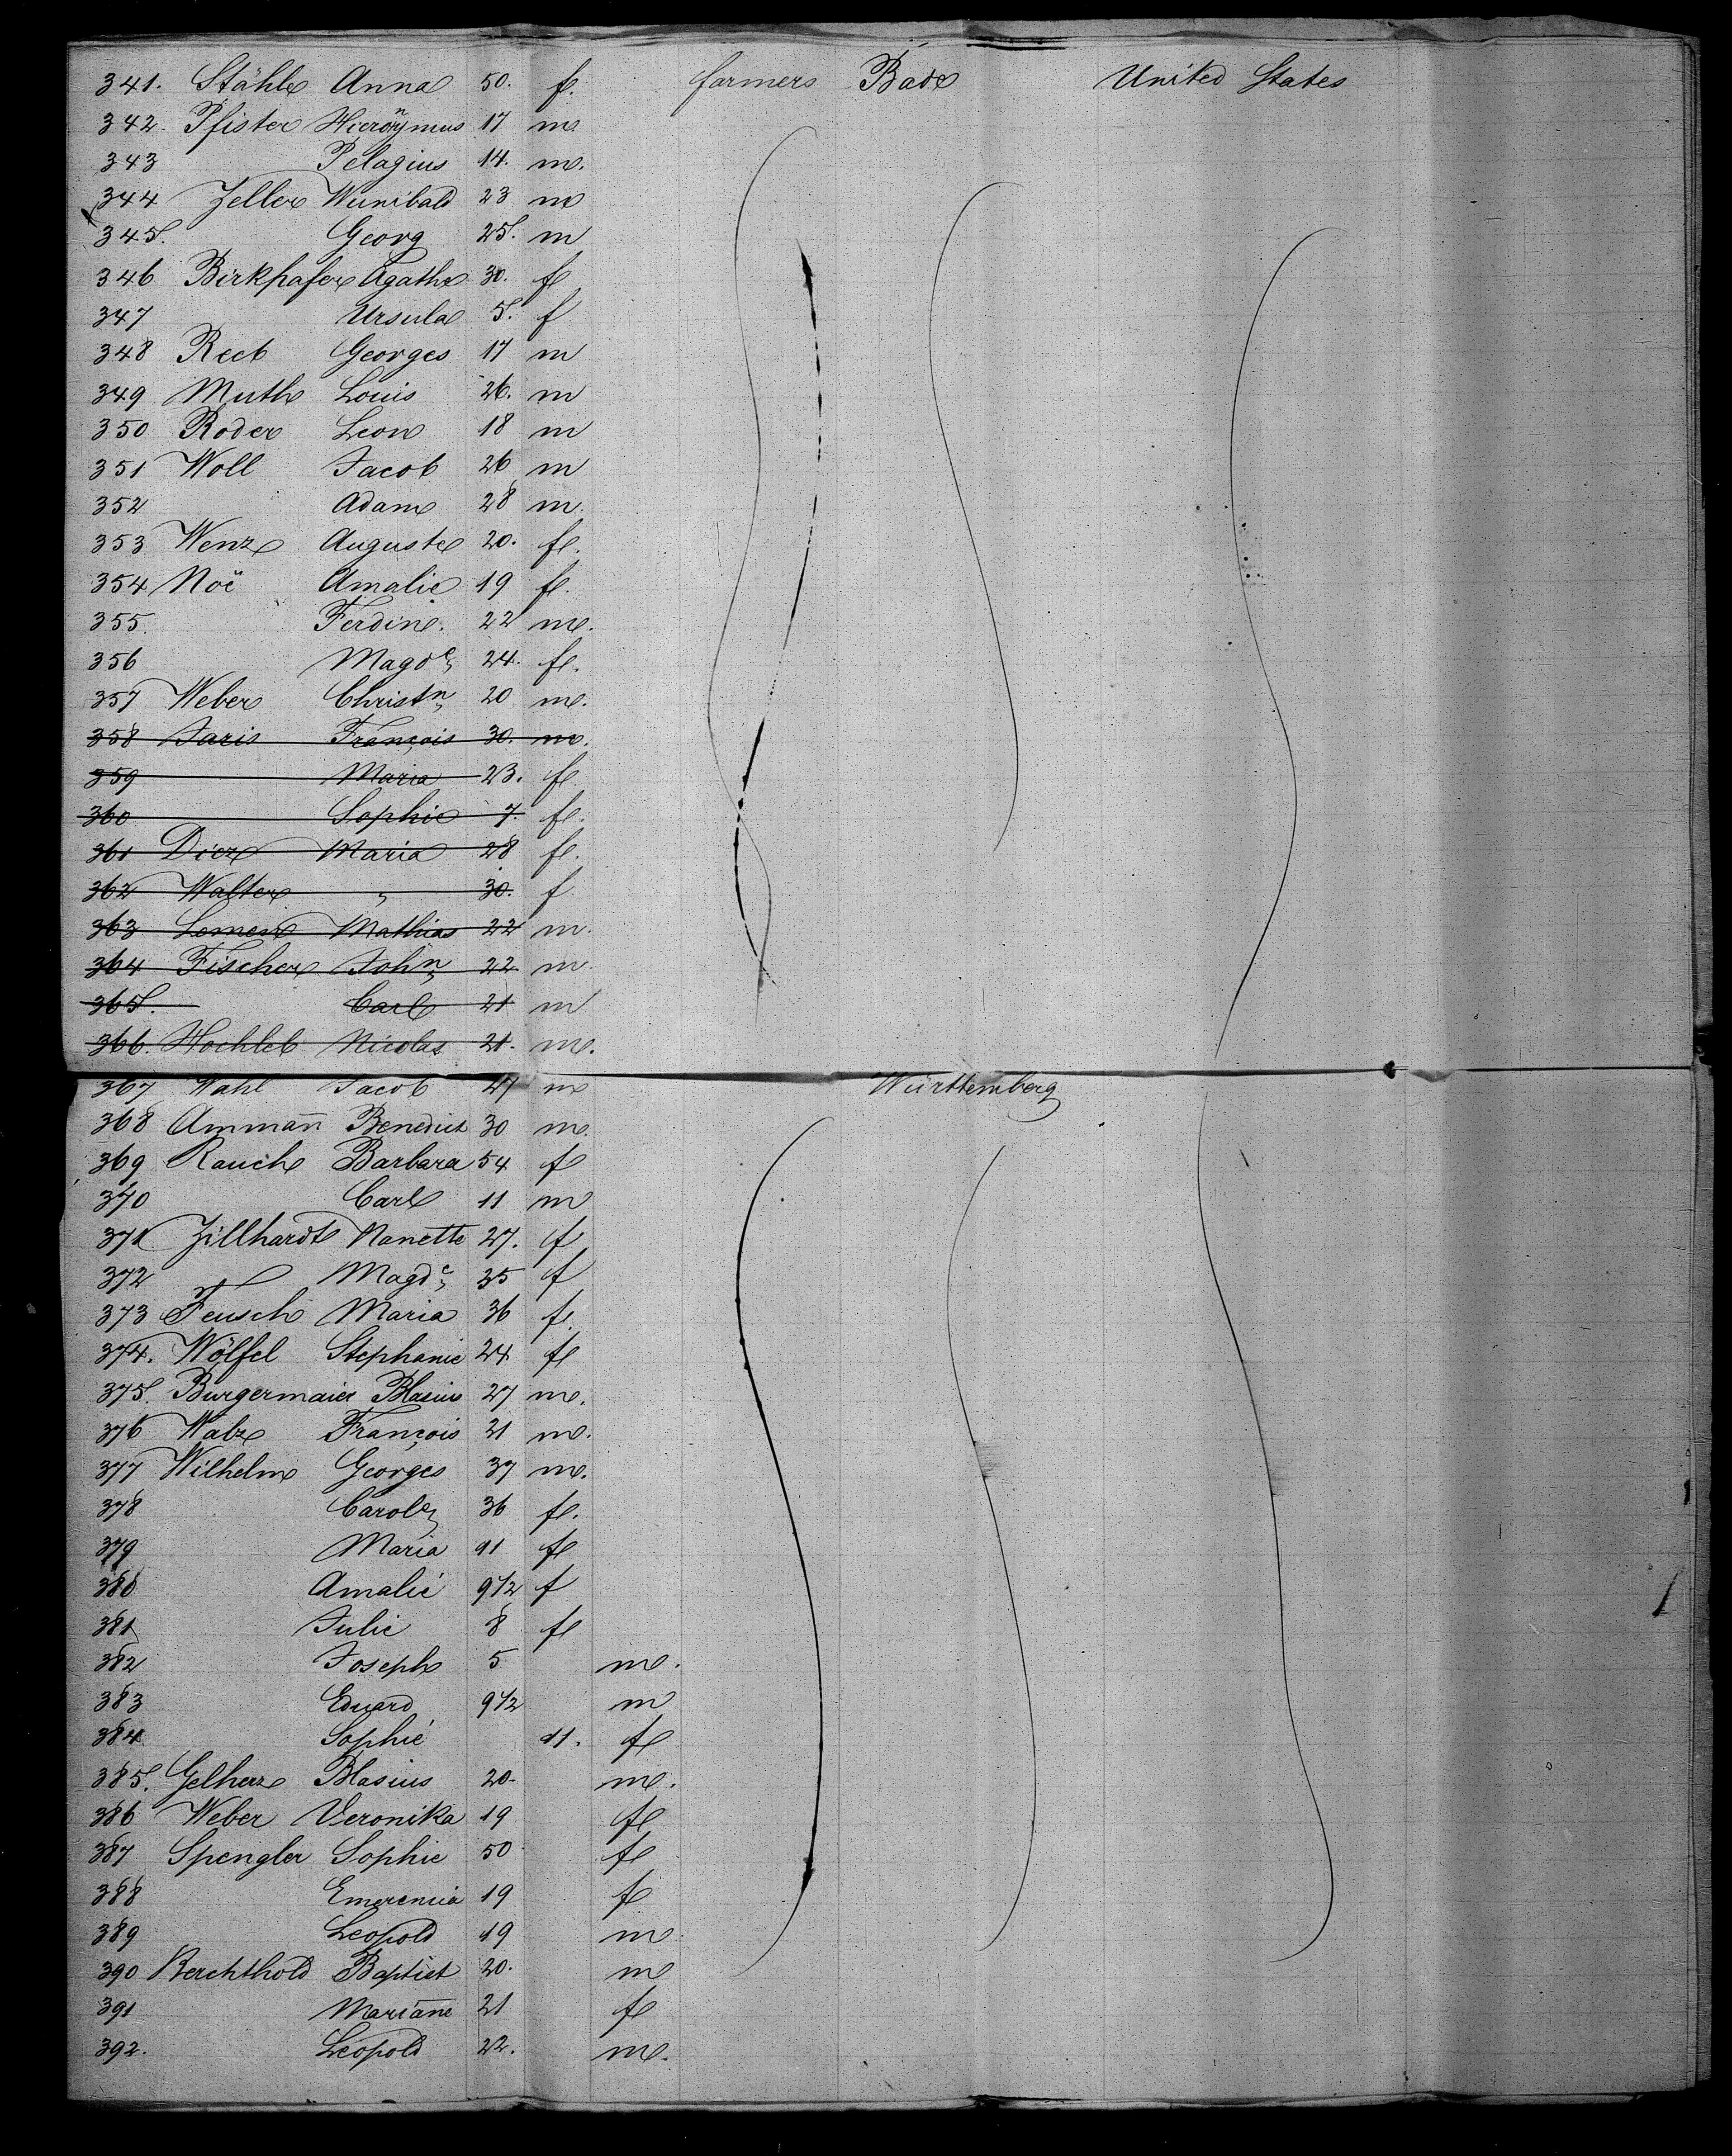 341. Stähle Anna 50. f. farmers Bade United States
342. Pfister Hieronymus 17 m
343 Pelagius 14. m.
344 Zeller Wunibald 23 m
345. Georg 25. m
346 Birkhofer Agathe 30. f
347 Ursula 5. f
348 Reeb Georges 17 m
349 Muth Louis 26. m
350 Roder Leon 18 m
351 Woll Jacob 26 m
352 Adam 28 m.
353 Wenz Auguste 20. f.
354 Noë Amalie 19 f.
355. Ferdin. 22 m.
356 Magde 24. f.
357 Weber Christn 20 m.
358 Jaris François 30. m.
359 Maria 23. f
360 Sophie 7. f.
361 Dier Maria 28 f.
362 Walter " 30. f
363 Lemen Mathias 22 m.
364 Fischer Johñ 22 m.
365. Carl 21 m
366. Hochleb Nicolas 21. m.
367 Wahl Jacob 27 m Württemberg
368 Ammañ Benedict 30 m.
369 Rauch Barbara 54 f
370 Carl 11 m
371 Zillhardt Nanette 27. f
372 Magde 25 f
373 Feusch Maria 36 f.
374. Wölfel Stephanie 24 f
375. Burgermaier Blasius 27 m.
376 Walz François 21 m.
377 Wilhelm Georges 37 m.
378 Carole 36 f.
379 Maria 11 f
380 Amalie 9 1/2 f
381 Julie 8 f
382 Joseph 5 m.
383 Eduard 9 1/2 m
384 Sophie 11. f
385. Gelherz Blasius 20. m.
386 Weber Veronika 19 f
387 Spengler Sophie 50 f
388 Emerencia 19 f
389 Leopold 19 m
390 Berchthold Baptist 20. m
391 Mariane 21 f
392. Leopold 22. m.